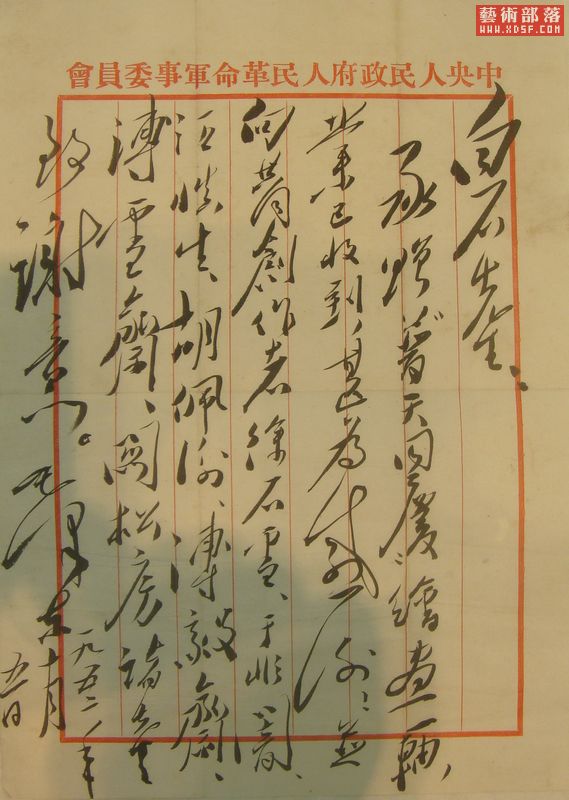 藝術部落
WWW.XDSF.COM
中央人民政府人民革命軍事委員會
白石先生、
承贈普天同慶繪畫一軸,
業已收到,甚為感谢,並
向共同創作者徐石雪、于非闇、
汪慎生、胡佩衡、溥毅齋、
溥雪齋、関松房諸先生
致謝意。毛泽东
一九五二年
十月
五日